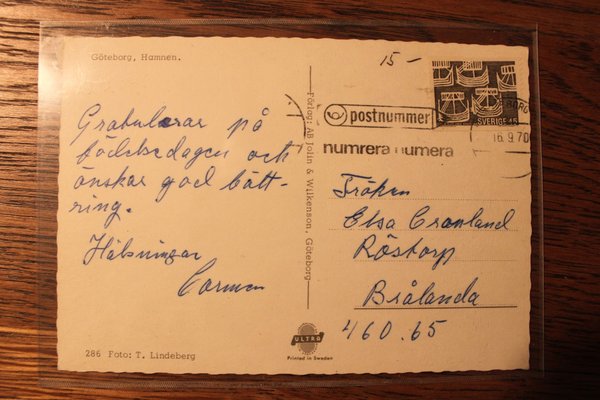 Göteborg, Hamnen.
15 -
postnummer
numrera numera
SVERIGE 45
16.9.70
Gratulerar på
födelsedagen och
önskar god bätt-
ring.
Hälsningar
Carmen
Förlag: AB Jolin & Wilkenson, Göteborg
Fröken
Elsa Cronlund
Röstorp
Brålanda
460.65
ULTRA
Printed in Sweden
286 Foto: T. Lindeberg